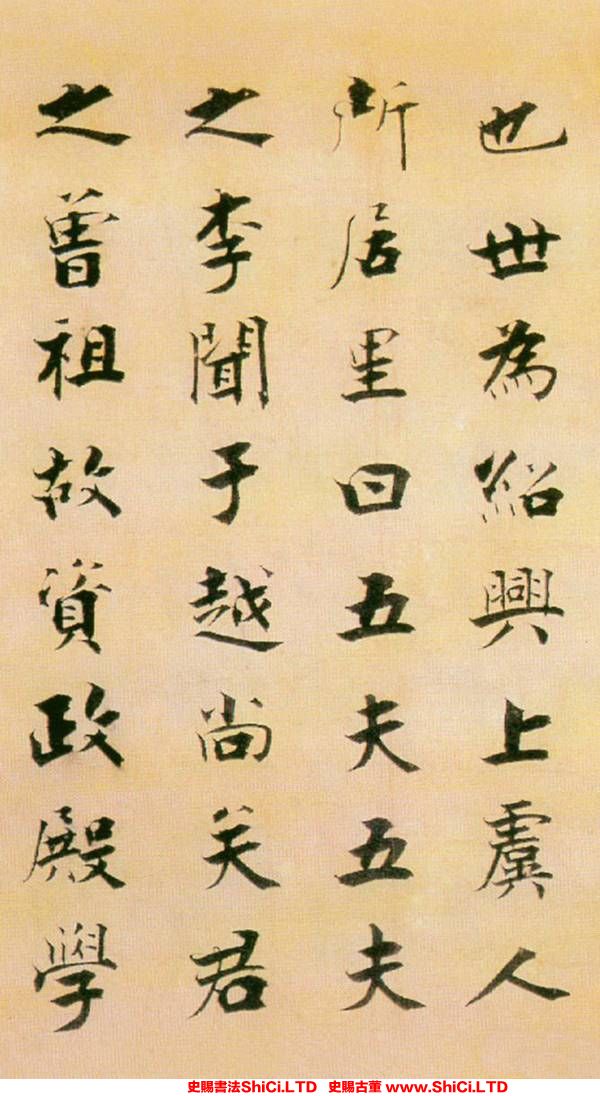 也世為紹興上虞人
所居里曰五夫五夫
之李聞于越尚矣君
之曾祖故資政殿學
史賜書法ShiCi.LTD 史賜古董 www.ShiCi.LTD